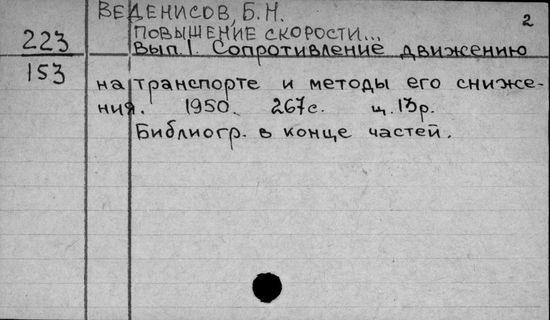 ВЕДЕНИСОВ, Б.Н.
2
ПОВЫШЕНИЕ СКОРОСТИ...
223
Вып.1. Сопротивление движению
153
на транспорте и методы его сниже-
ния. 1950. 267с. ц.13р.
Библиогр. в конце частей.